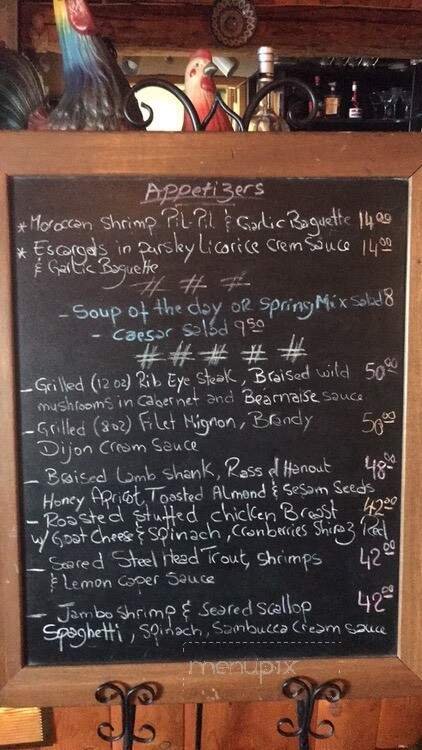 Appetizers
* Moroccan Shrimp Pil-Pil & Garlic Baguette 14 00
* Escargots in Parsley Licorice Crem Sauce 14 00
& Garlic Baguette
# # #
- Soup of the day OR Spring Mix salad 8
- Caesar salad 9 50
# # # # #
- Grilled (12 oz) Rib Eye Steak, Braised wild 50 00
mushrooms in Cabernet and Bearnaise sauce
- Grilled (8 oz) Filet Mignon, Brandy 50 00
Dijon Cream Sauce
- Braised Lamb shank, Rass el Hanout 48 00
Honey Apriot, Toasted Almond & Sesam Seeds
- Roasted stuffed chicken Breast 42 00
w/ Goat Cheese & Spinach, Cranberries Shiraz Red
- Seared Steel Head Trout, shrimps 42 00
& Lemon Caper Sauce
- Jambo Shrimp & Seared Scallop 42 00
Spaghetti, Spinach, Sambucca Cream sauce
menupix